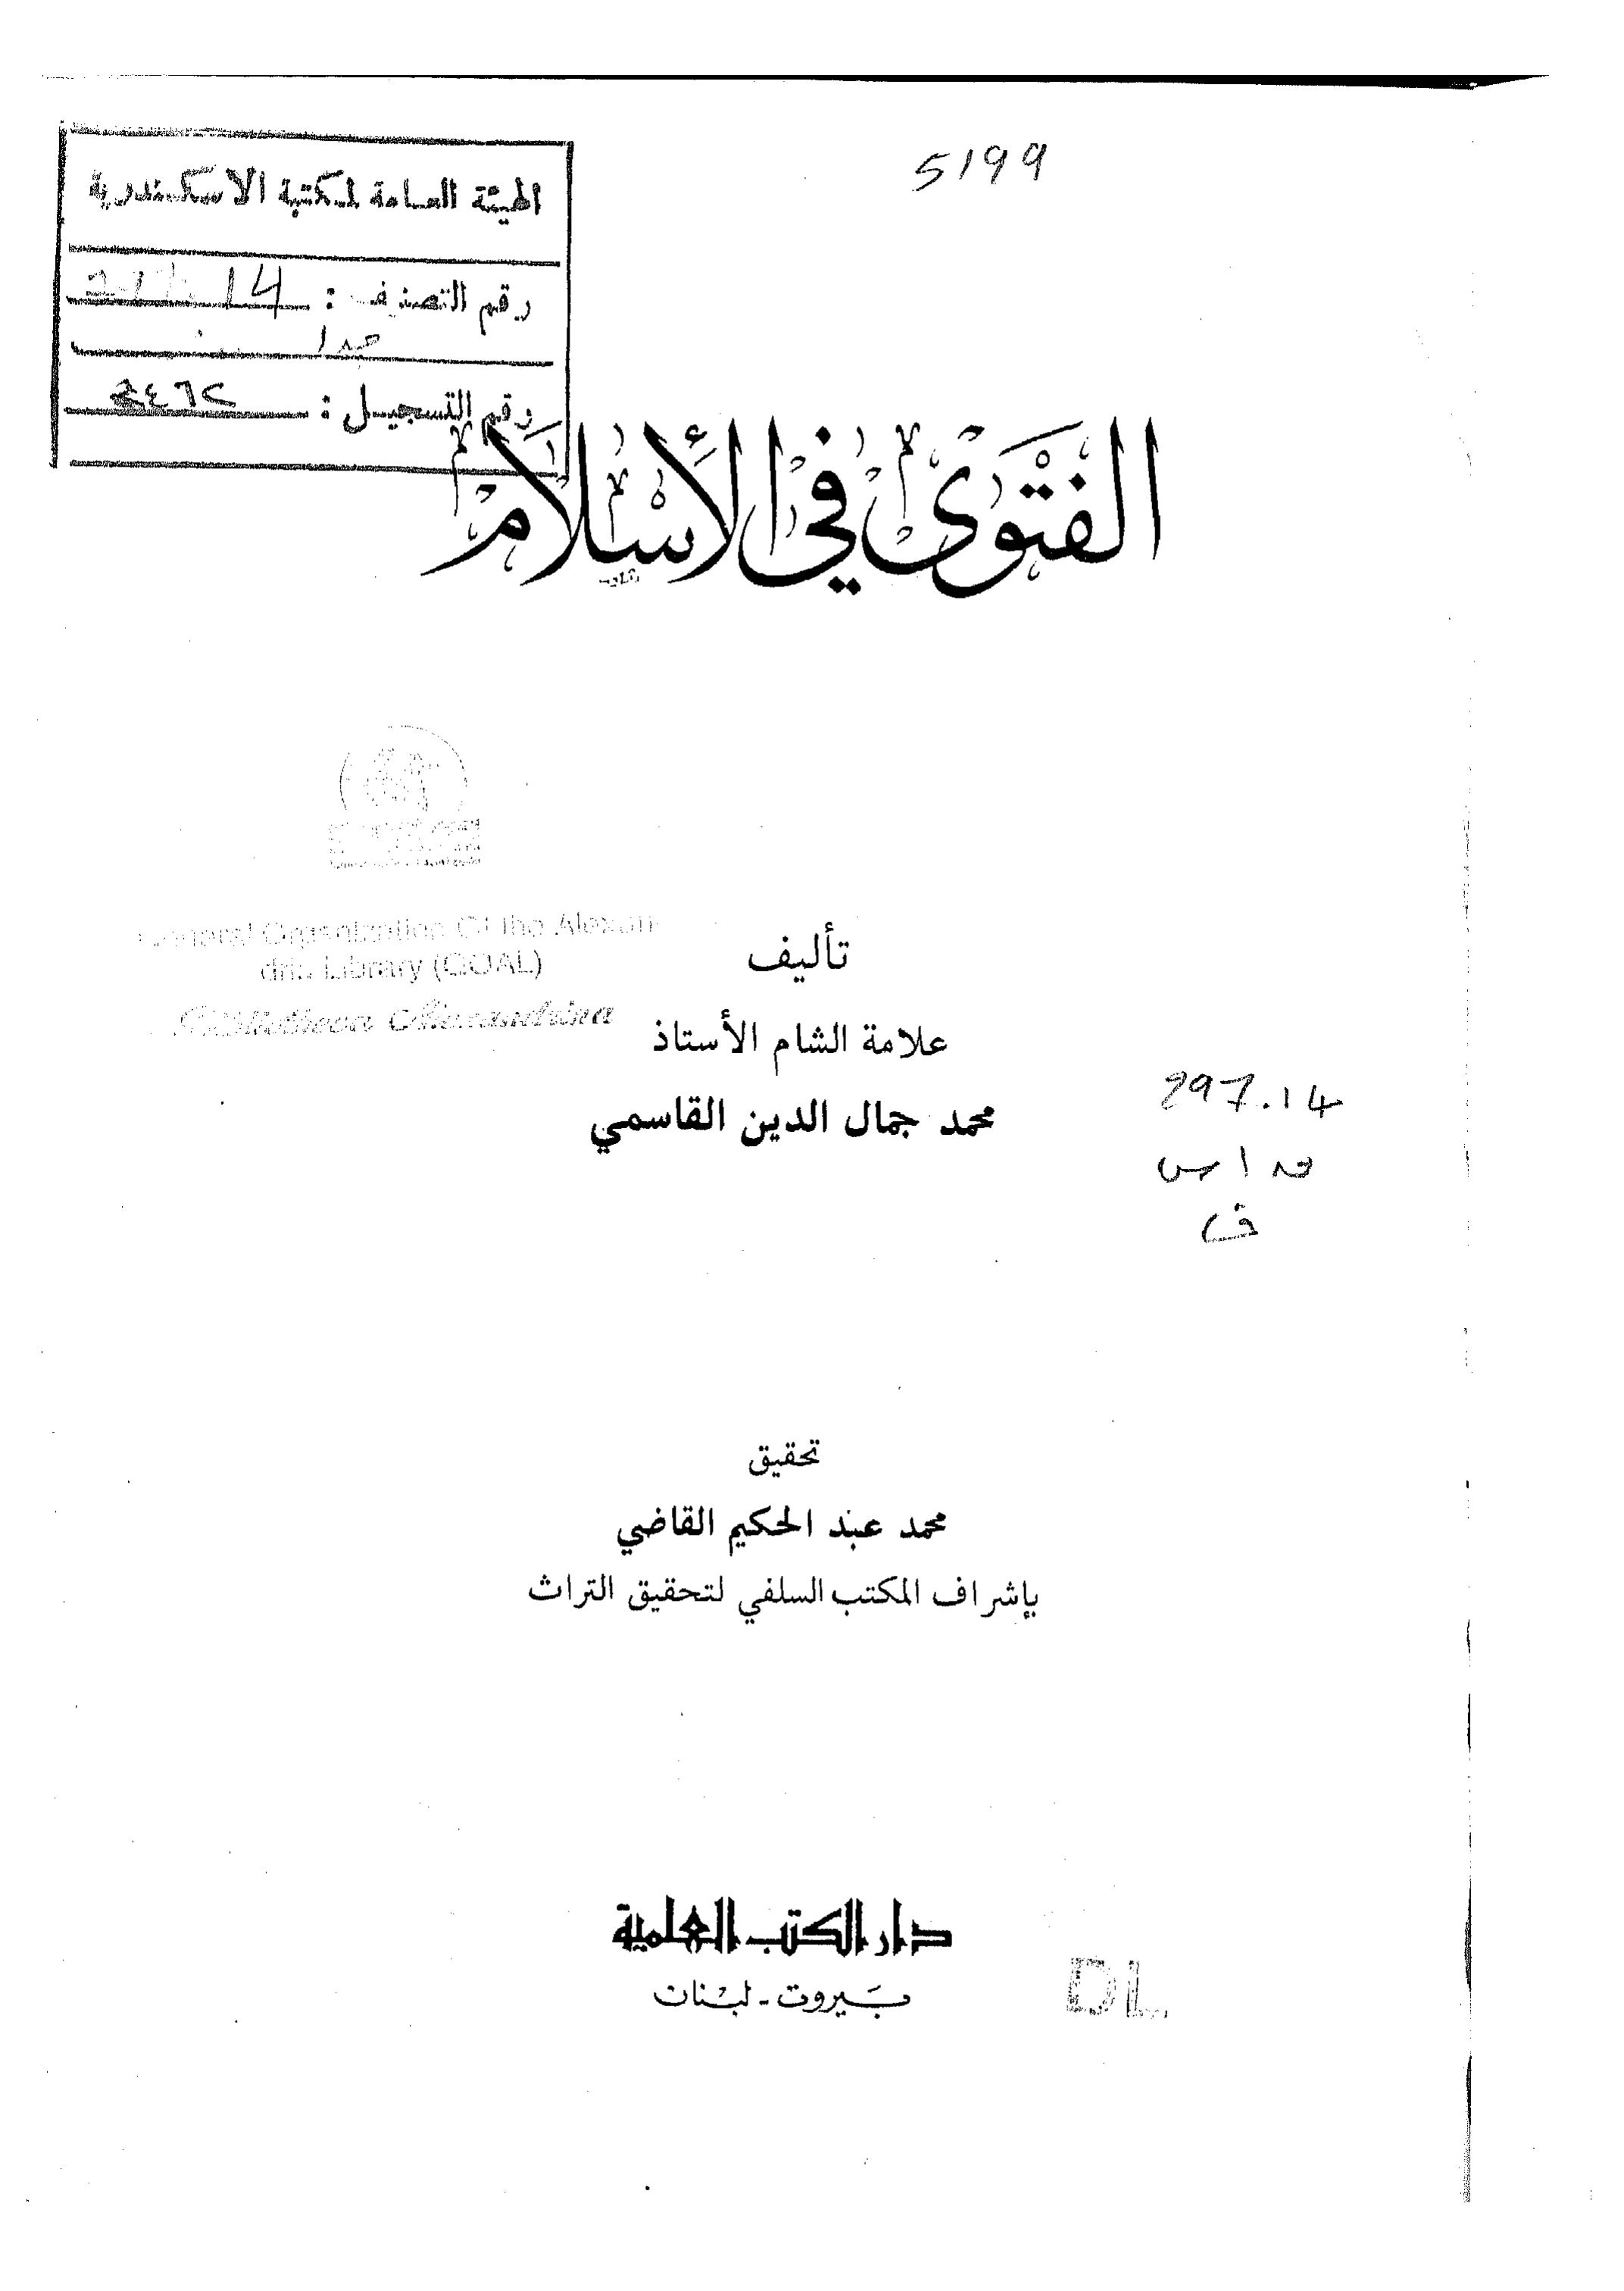 5199
الهيئة العامة لمكتبة الاسكندرية
رقم التصنيف : 14
رقم التسجيل :
الفتوى في الإسلام
General Organization Of the Alexan-
dria Library (GOAL)
Bibliotheca Alexandrina
تأليف
علامة الشام الأستاذ
محمد جمال الدين القاسمي
297.14
ف
تحقيق
محمد عبد الحكيم القاضي
بإشراف المكتب السلفي لتحقيق التراث
دار الكتب العلمية
بيروت - لبنان
DL